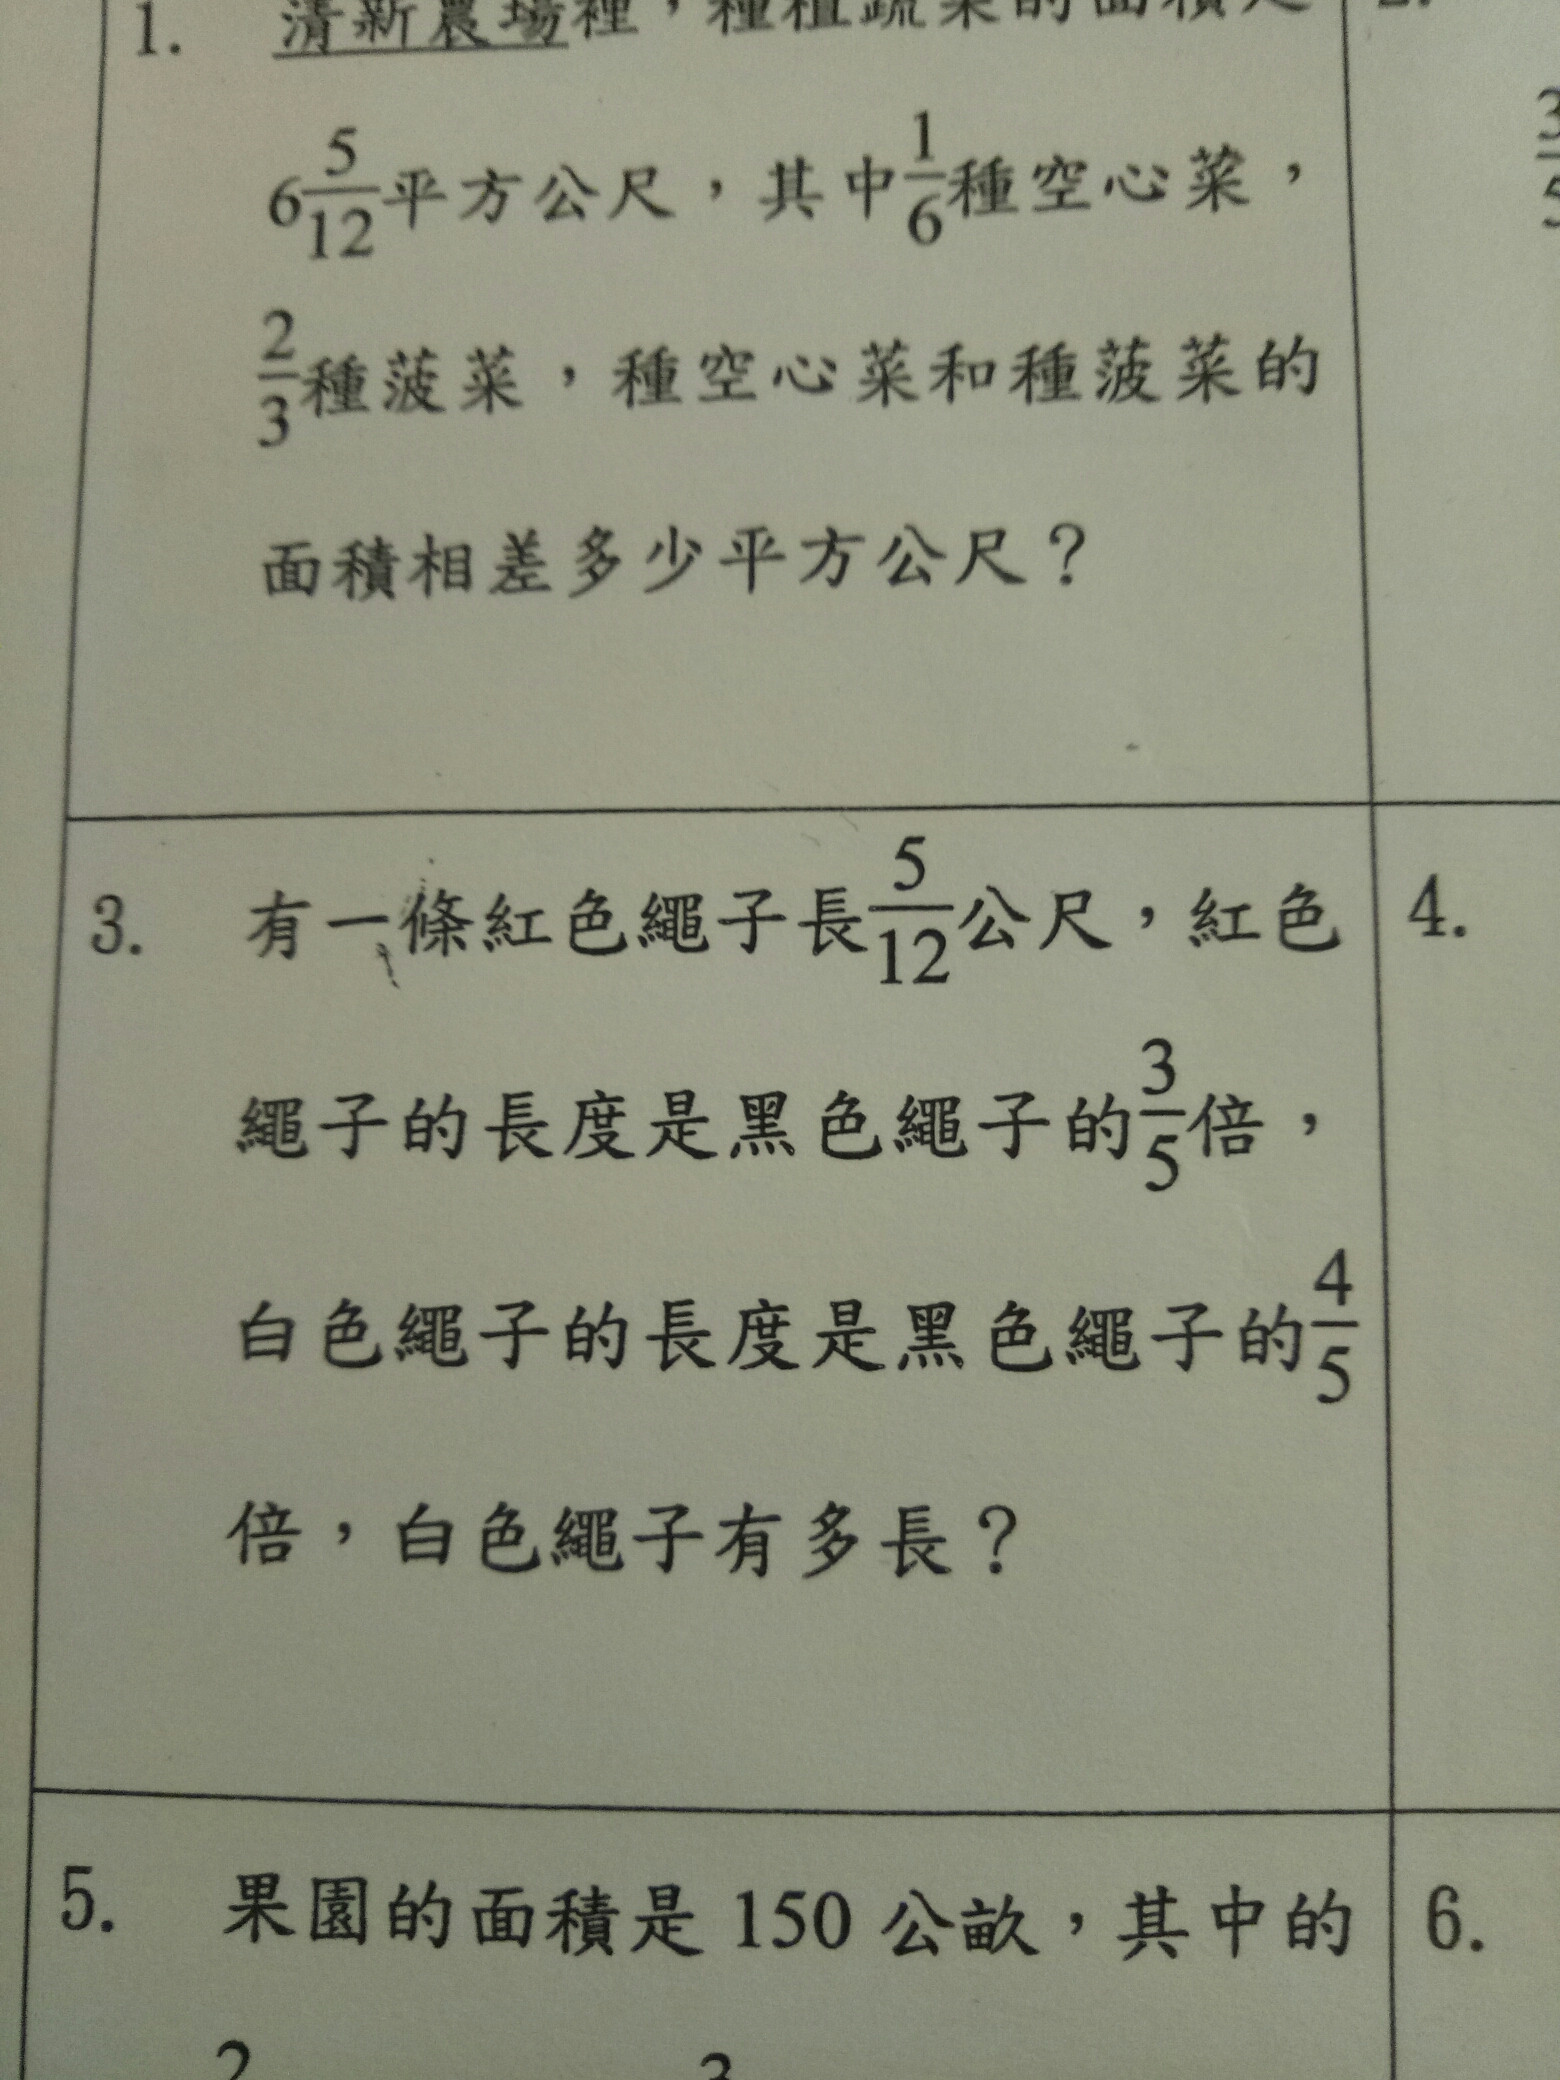 1. 清新農場裡,種植蔬菜的面積是
6 5/12 平方公尺,其中 1/6 種空心菜,
2/3 種菠菜,種空心菜和種菠菜的
面積相差多少平方公尺?
2.
3/5
3. 有一條紅色繩子長 5/12 公尺,紅色
繩子的長度是黑色繩子的 3/5 倍,
白色繩子的長度是黑色繩子的 4/5
倍,白色繩子有多長?
4.
5. 果園的面積是 150 公畝,其中的
2 3
6.